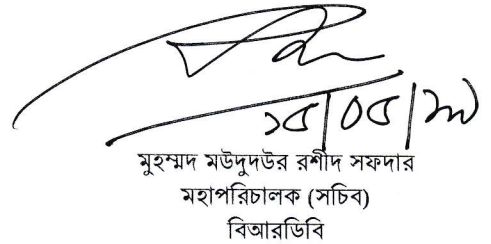 ১৫/০৫/১৭
মুহম্মদ মউদুদউর রশীদ সফদার
মহাপরিচালক (সচিব)
বিআরডিবি